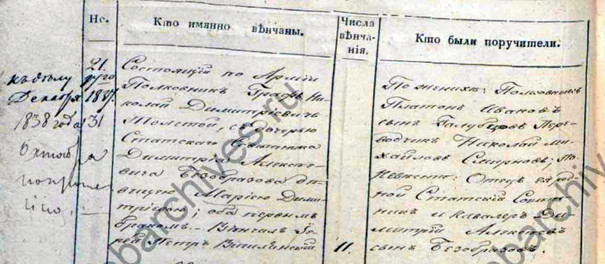 Но.
Кто имянно вѣнчаны.
Числа
вѣнча-
нія.
Кто были поручители.
21.
Состоящій по Арміи
Полковникъ Графъ Ни-
колай Димитріевичь
Толстой, съ дочерью
Статского Советника
Димитрія Алексѣ-
вича Безобразова дѣ-
вицею Маріею Дими-
тріевою; оба первымъ
бракомъ. — Вѣнчалъ
Петръ
11.
По женихѣ: Полковникъ
Платонъ Ивановъ
сынъ Голубцовъ
Николай Ми-
хайловъ Смирновъ; по
невѣстѣ: Отецъ ея род-
ной Статскій Совѣт-
никъ и кавалеръ Ди-
митрій Алексѣевъ
сынъ Безобразовъ.
къ дѣлу
Декабря
1838 года 31
barchives.ru
barchiv